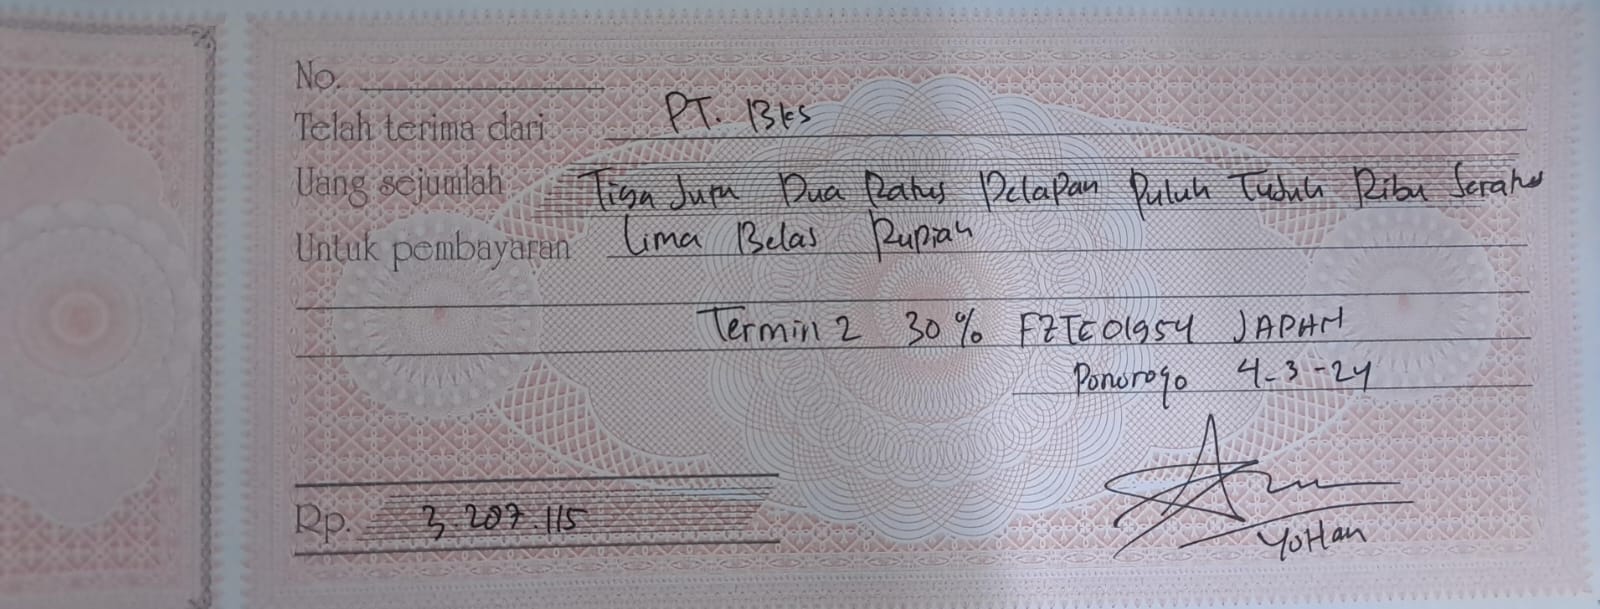 No.
Telah terima dari PT. Bks
Uang sejumlah Tiga Juta Dua Ratus Delapan Puluh Tujuh Ribu Seratus
Untuk pembayaran Lima Belas Rupiah
Termin 2 30% FZTE01954 JAPAN
Ponorogo 4-3-24
Rp. 3.287.115
YoHan